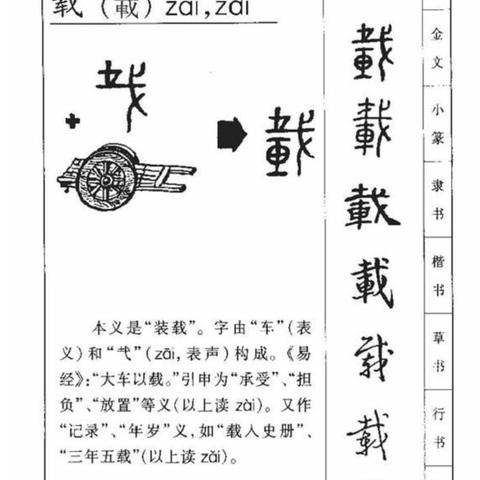 载（載）zài,zǎi
𢦏
+
載
本义是“装载”。字由“车”(表
义)和“𢦏”(zāi,表声)构成。《易
经》:“大车以载。”引申为“承受”、“担
负”、“放置”等义(以上读 zài)。又作
“记录”、“年岁”义,如“载入史册”、
“三年五载”(以上读 zǎi)。
載
載
載
載
载
载
金文
小篆
隶书
楷书
草书
行书